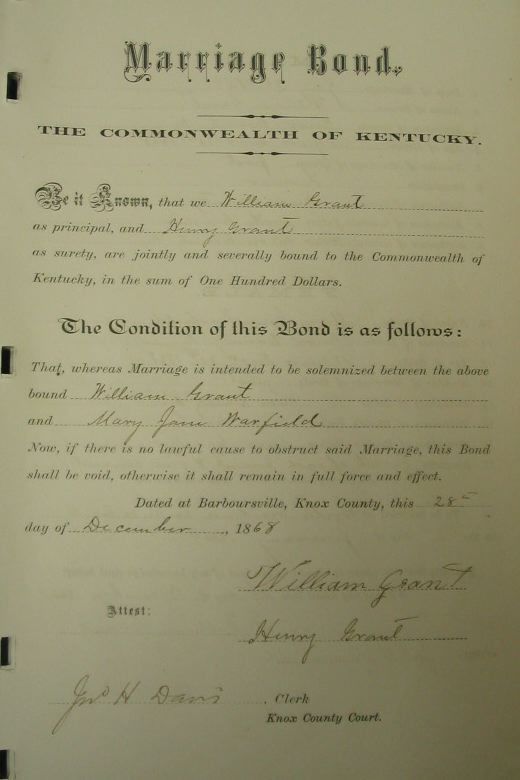 Marriage Bond.
THE COMMONWEALTH OF KENTUCKY.
Be it Known, that we William Grant
as principal, and Henry Grant
as surety, are jointly and severally bound to the Commonwealth of
Kentucky, in the sum of One Hundred Dollars.
The Condition of this Bond is as follows:
That, whereas Marriage is intended to be solemnized between the above
bound William Grant
and Mary Jane Warfield
Now, if there is no lawful cause to obstruct said Marriage, this Bond
shall be void, otherwise it shall remain in full force and effect.
Dated at Barboursville, Knox County, this 28th
day of December, 1868
William Grant
Attest:
Henry Grant
Jno H Davis, Clerk
Knox County Court.